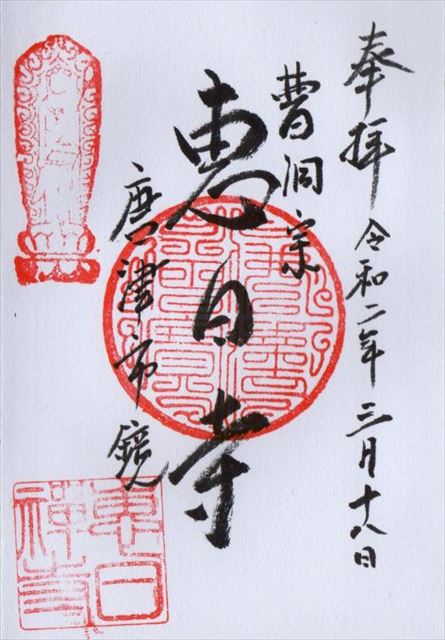 奉拝 令和二年 三月十八日
曹洞宗
恵日寺
唐津市鏡
恵日
禅寺